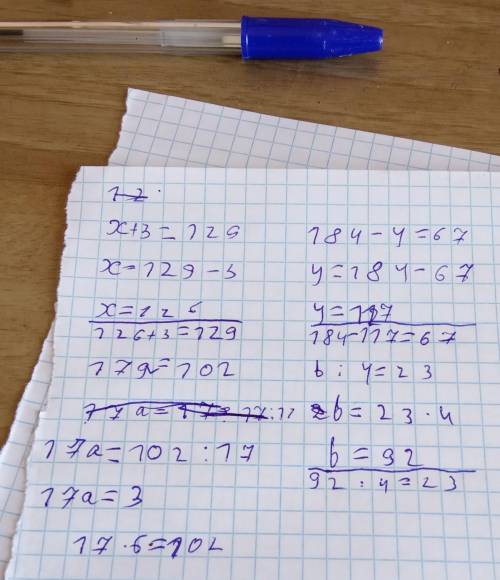 x+3=129
x=129-3
x=126
126+3=129
17a=102
17a=102:17
17a=3
17·6=102
184-y=67
y=184-67
y=117
184-117=67
b:4=23
b=23·4
b=92
92:4=23